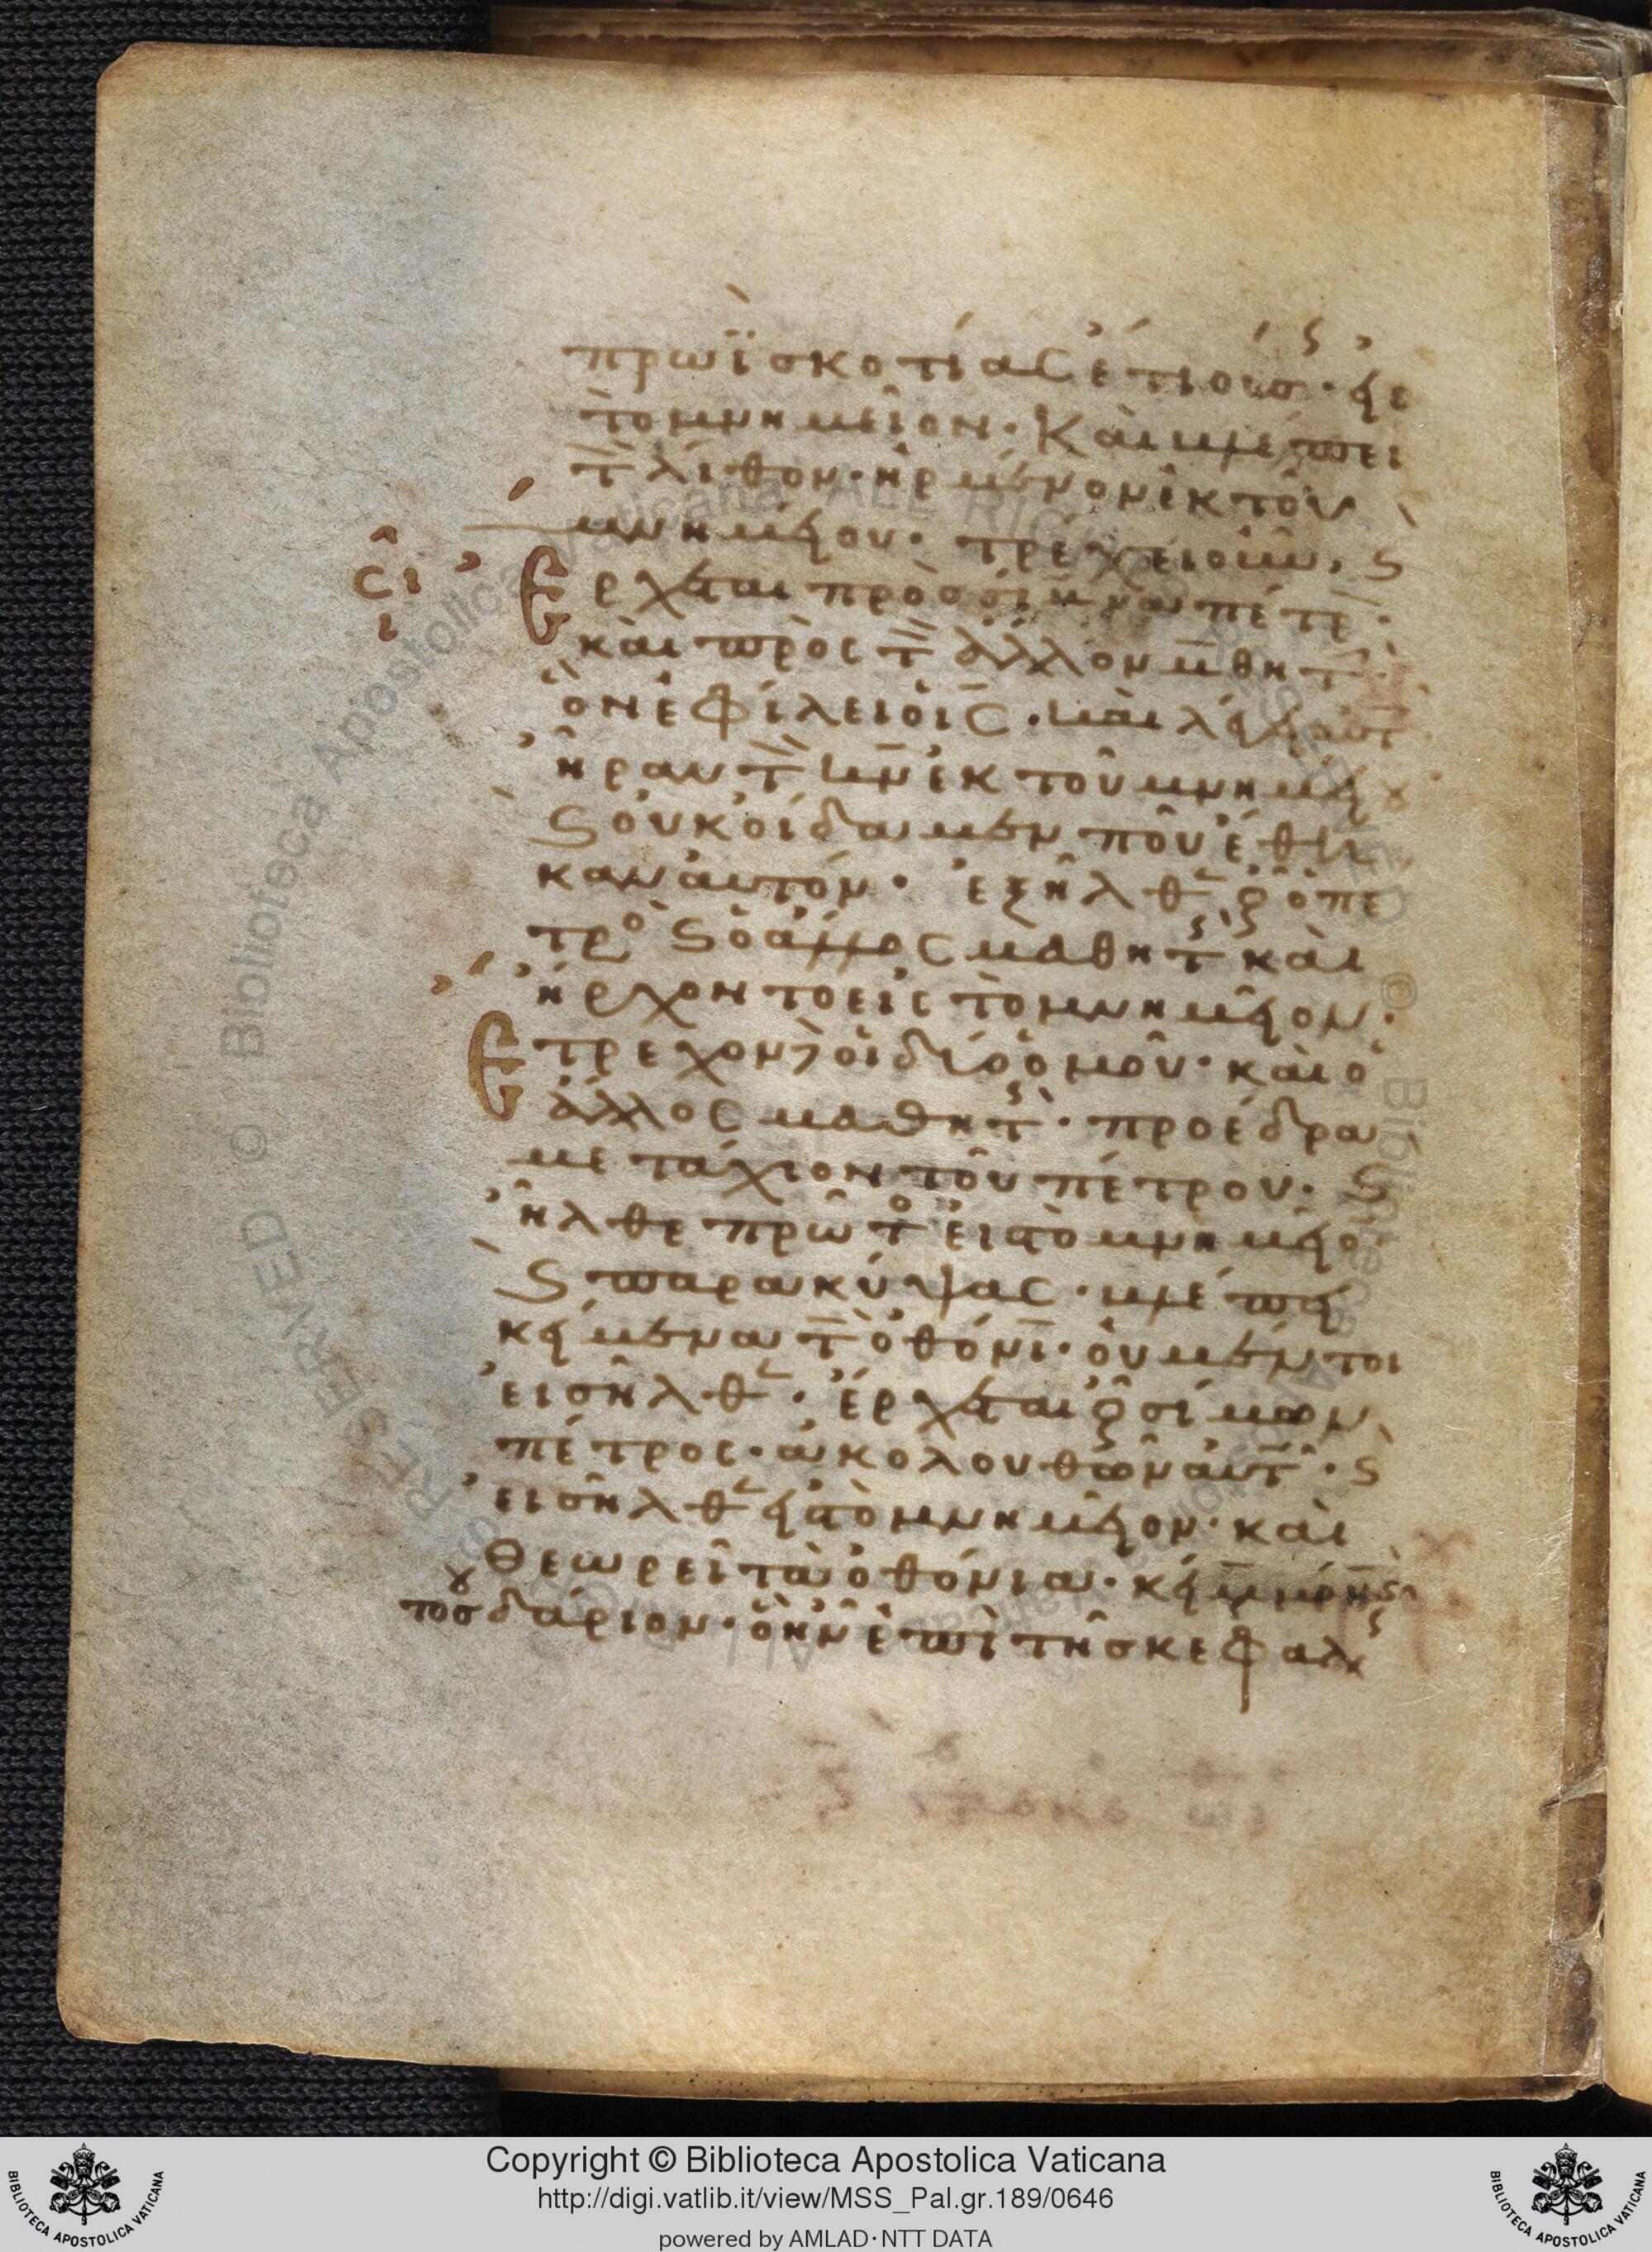 πρωῒ σκοτίας ἔτι οὔσ· εἰ
τὸ μνημεῖον· Καὶ βλέπει
τ̄ λίθον· ἠρμένον ἐκ τοῦ
μνημείου· τρέχει οὖν, ϛ
Ερχεται πρὸς σίμωνα πέτρ·
καὶ πρὸς τ̄ ἄλλον μαθητ
ὃν ἐφίλει ὁ ις̄· καὶ λέγει αὐτ
ἦραν τ̄ κν̄ ἐκ τοῦ μνημείου
ϛ οὐκ οἴδαμεν ποῦ ἔθη
καν αὐτόν· ἐξῆλθ οὖν ὁ πέ
τρο ϛ ὁ ἄλλος μαθητ καὶ
ἤρχοντο εἰς τὸ μνημεῖον·
Ετρεχον οἱ δύο ὁμοῦ· καὶ ὁ
ἄλλος μαθητ· προέδρα
με τάχιον τοῦ πέτρου· ϛ
ἦλθε πρῶτο εἰς τὸ μνημεῖο
ϛ παρακύψας· βλέπει
κείμενα τ̄ ὀθόνι· οὐ μέντοι
εἰσῆλθ· ἔρχεται οὖν σίμων
πέτρος· ἀκολουθῶν αὐτ· ϛ
εἰσῆλθ εἰς τὸ μνημεῖον· καὶ
θεωρεῖ τὰ ὀθόνια· κείμενα ϛ
το σουδάριον· ὃ ἦν ἐπὶ τῆς κεφαλ
Copyright © Biblioteca Apostolica Vaticana
http://digi.vatlib.it/view/MSS_Pal.gr.189/0646
powered by AMLAD·NTT DATA
BIBLIOTECA APOSTOLICA VATICANA
BIBLIOTECA APOSTOLICA VATICANA